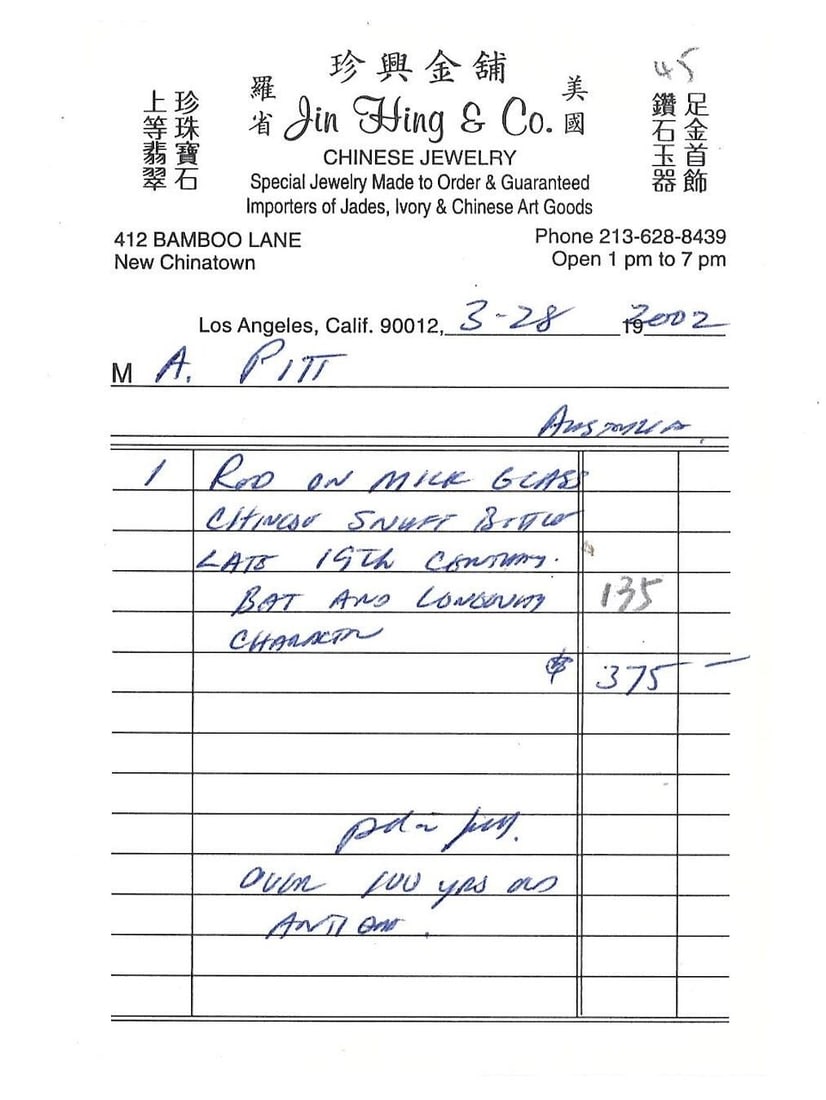 45
珍興金舖
羅省 Jin Hing & Co. 美國
上等翡翠 珍珠寶石
鑽石玉器 足金首飾
CHINESE JEWELRY
Special Jewelry Made to Order & Guaranteed
Importers of Jades, Ivory & Chinese Art Goods
412 BAMBOO LANE Phone 213-628-8439
New Chinatown Open 1 pm to 7 pm
Los Angeles, Calif. 90012, 3-28 19 2002
M A. PITT
AUSTRALIA
1 RED ON MILK GLASS
CHINESE SNUFF BOTTLE
LATE 19Th CENTURY.
BAT AND LONGEVITY 135
CHARACTER
$ 375 —
pd in full.
OVER 100 YRS OLD
ANTIQUE.